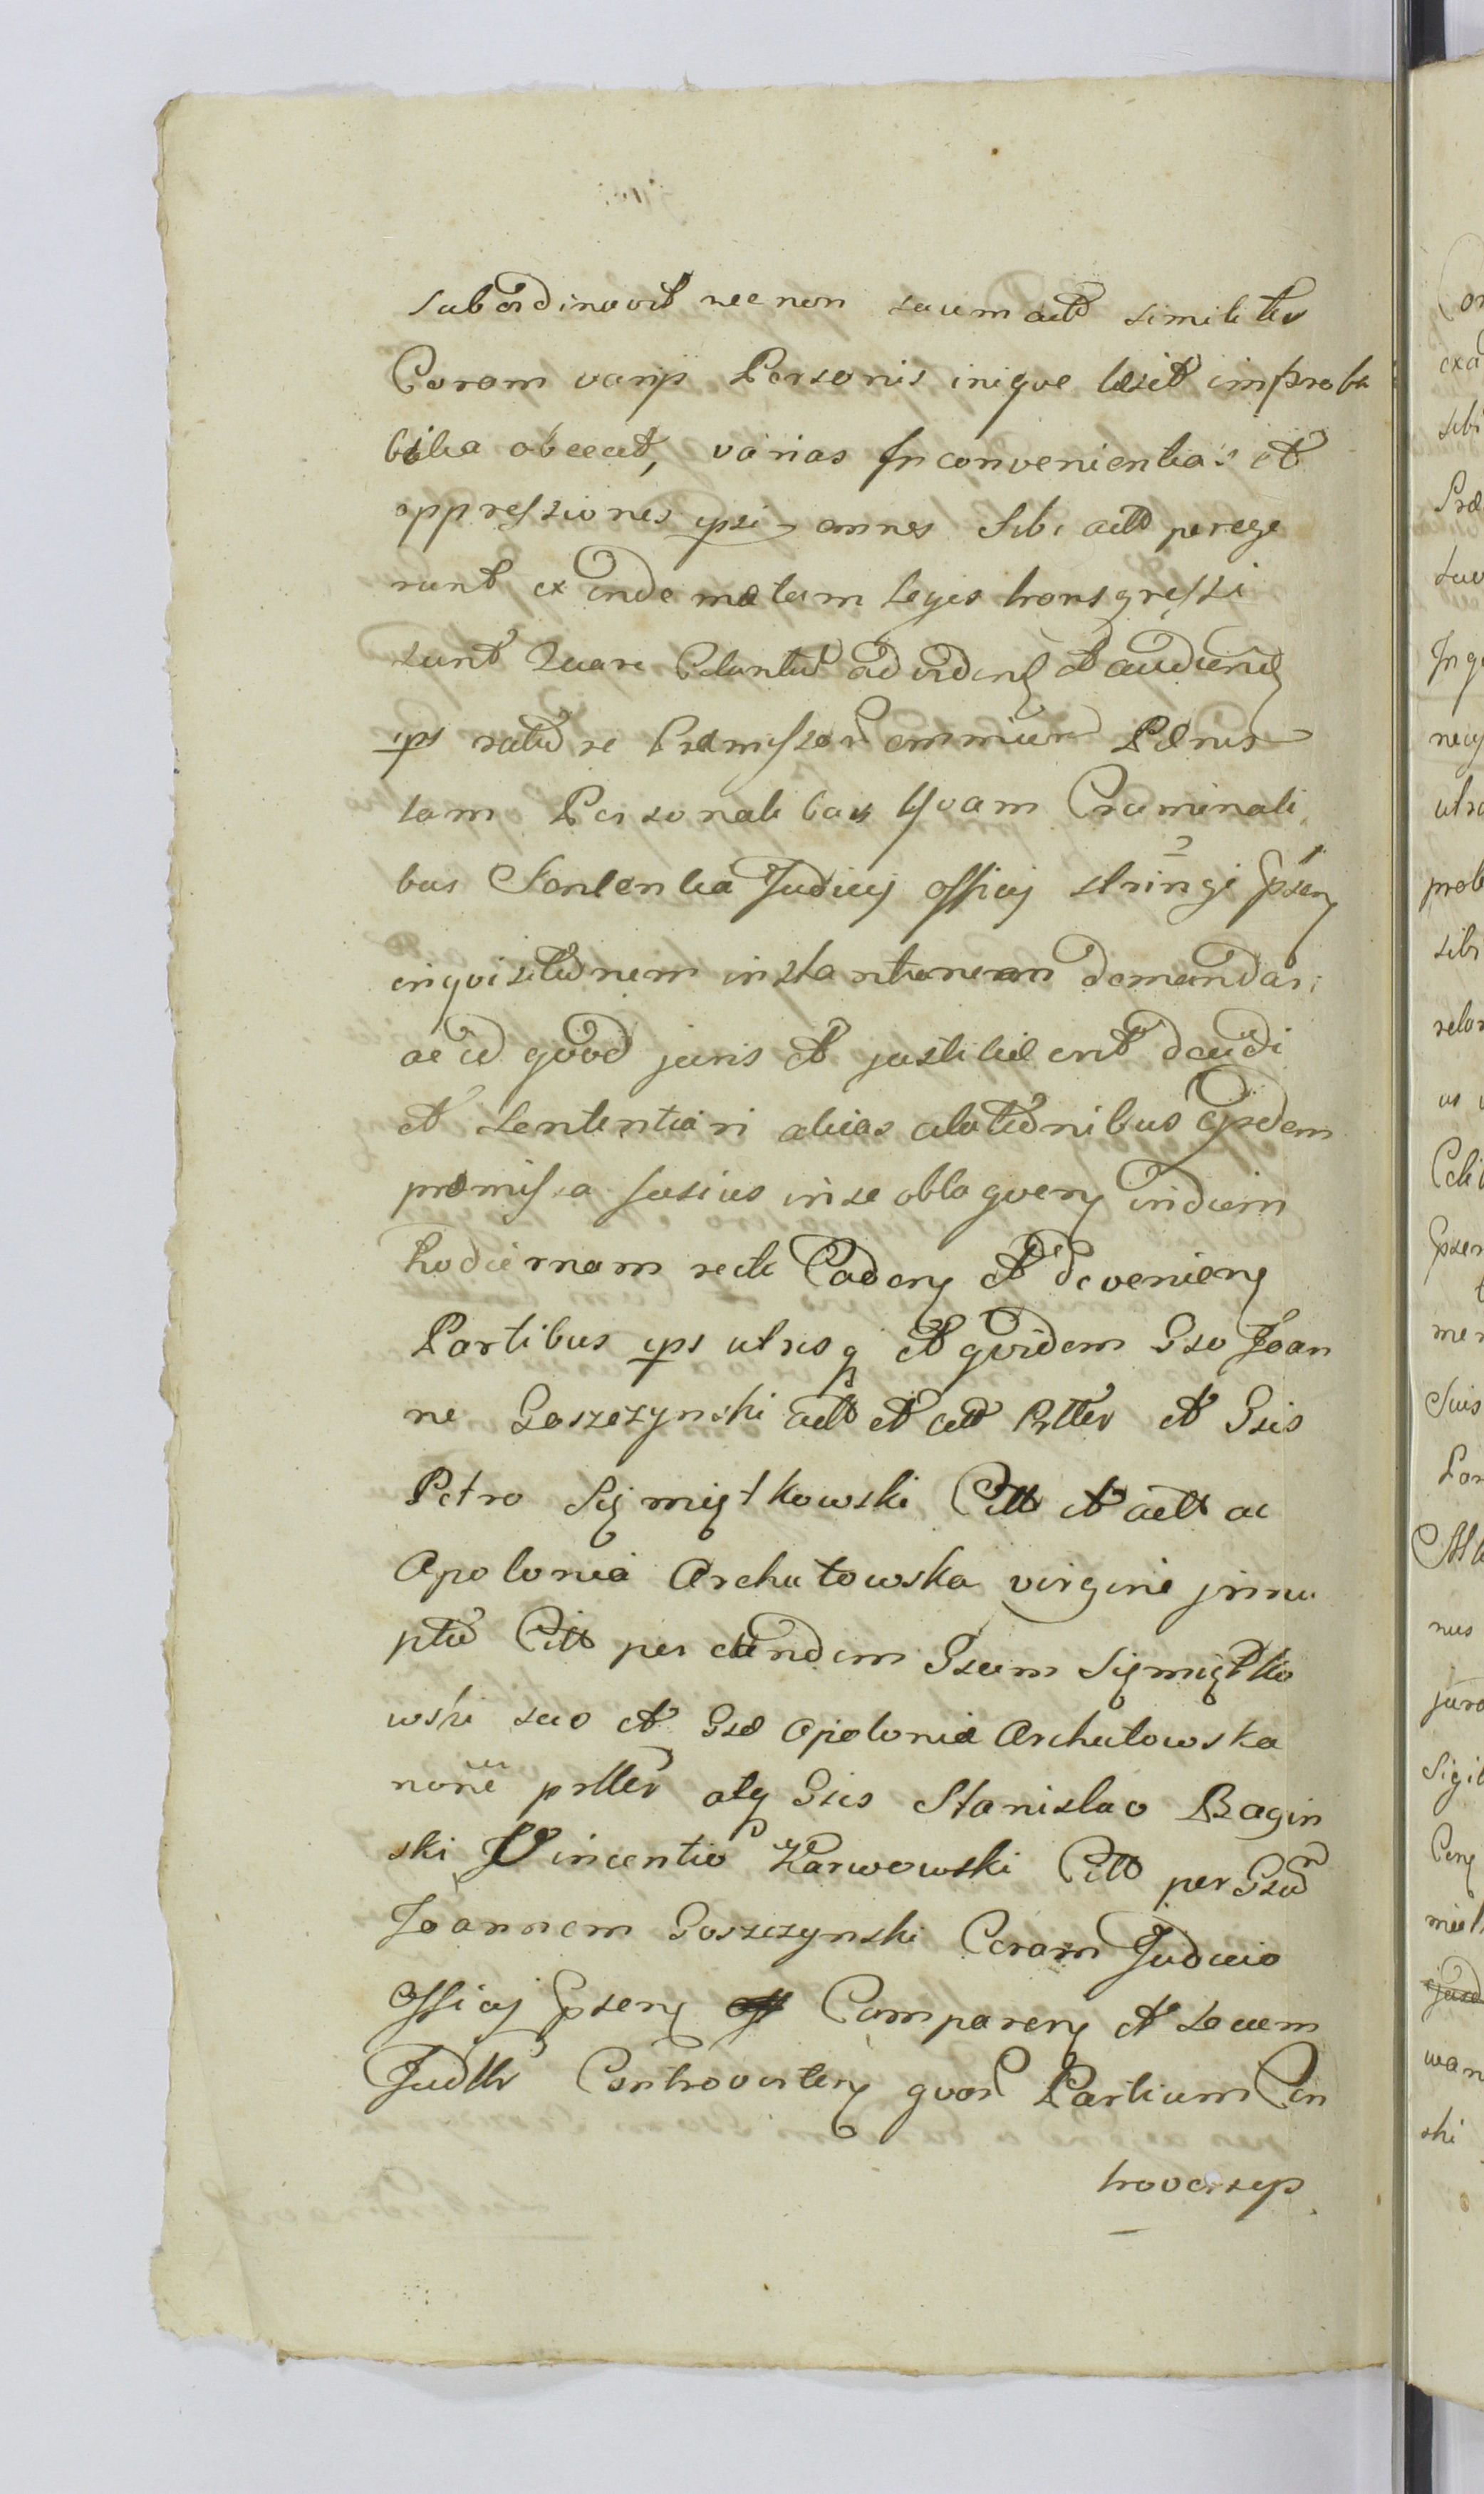 subordinavit nec non suum actt similiter
Coram varijs Personis inique læsit improba
bilia objecit, varias Inconvenientias et
oppressiones ipsi omnes sibi actt perege
runt ex inde mætam Legis transgressi
sunt Quare Citantur ad videndɥ et audiendɥ
ips ratione Præmissor omnium Pænis
tam Personalibus Quam Criminali
bus Sententia Judicij officij stringi Ipseny
inquisitionem instantaneam demandari
ac id quod juris et justitiæ erit decidi
et Sententiari alias citationibus eisdem
præmissa fusius in se obloqueny in diem
hodiernam recte Cadeny et devenieny
Partibus ips utrisq et quidem Gso Joan
ne Goszczynski actt et citt prtter et Gsis
Petro Symiętkowski Citt et actt ac
Apolonia Archutowska virgine innu
pta Citt per eundem Gsum Symiętko
wski suo et Gsæ Apoloniæ Archutowska
noīe prtter atq Gsis Stanislao Bagin
ski Vincentio Karwowski Citt per Gsum
Joannem Goszczynski Coram Judicio
Officij Ipseny Compareny et secum
Judtlr Controverteny quor Partium Con
troversijs